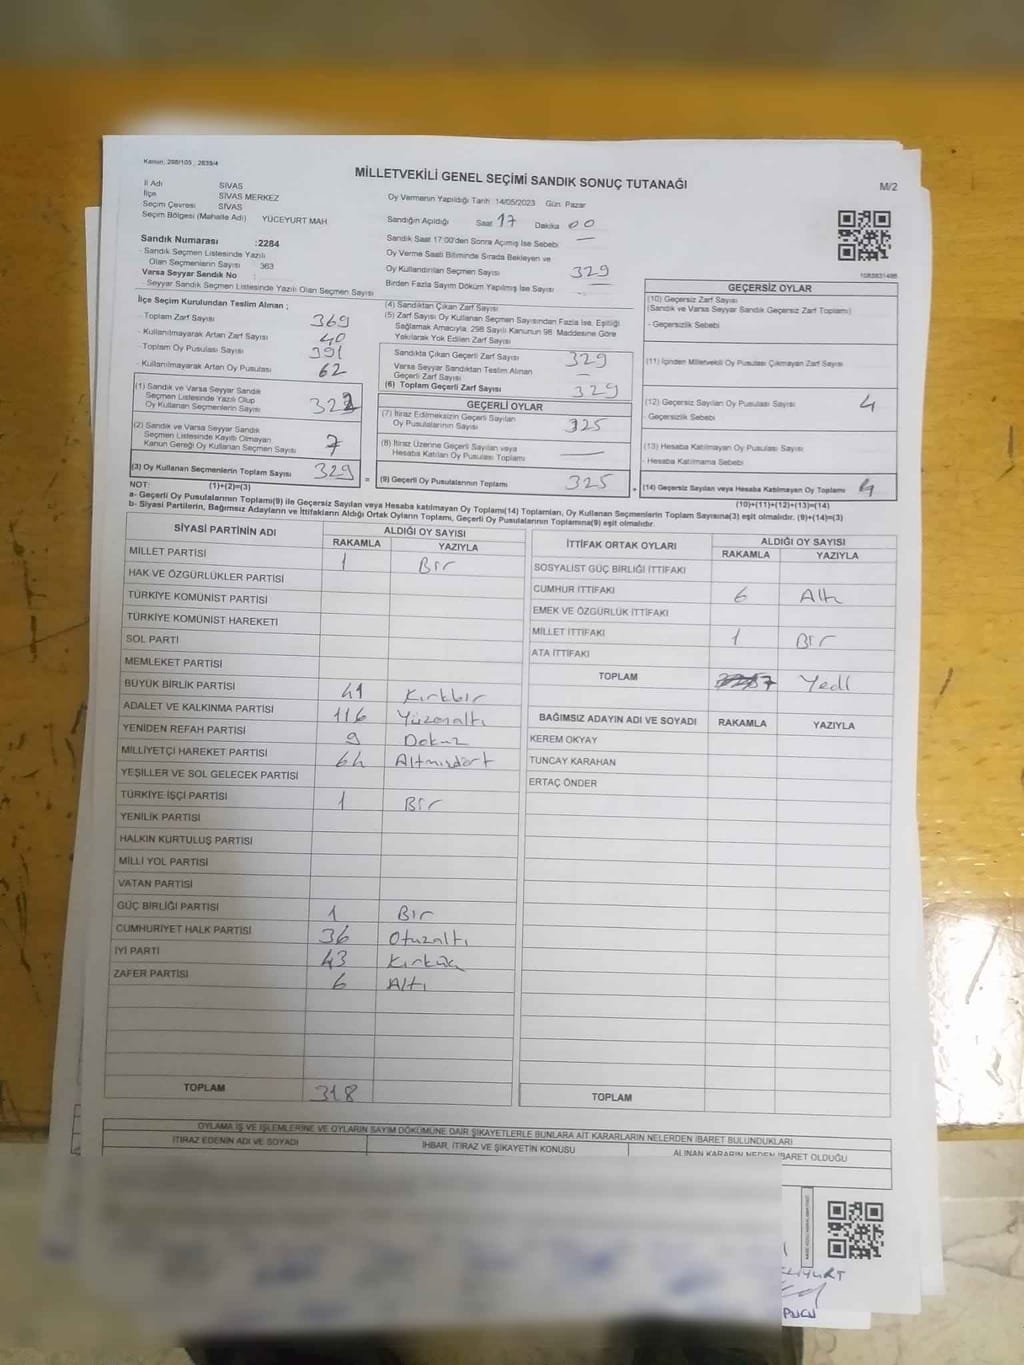 Kanun, 298/105 , 2839/4
MİLLETVEKİLİ GENEL SEÇİMİ SANDIK SONUÇ TUTANAĞI
M/2
İl Adı SİVAS
İlçe SİVAS MERKEZ
Seçim Çevresi SİVAS
Seçim Bölgesi (Mahalle Adı) YÜCEYURT MAH
Oy Vermenin Yapıldığı Tarih :14/05/2023 Gün: Pazar
Sandığın Açıldığı Saat 17 Dakika 00
Sandık Saat 17:00'den Sonra Açılmış İse Sebebi —
Oy Verme Saati Bitiminde Sırada Bekleyen ve
Oy Kullandırılan Seçmen Sayısı 329
Birden Fazla Sayım Döküm Yapılmış İse Sayısı —
Sandık Numarası :2284
- Sandık Seçmen Listesinde Yazılı
Olan Seçmenlerin Sayısı 363
Varsa Seyyar Sandık No :
- Seyyar Sandık Seçmen Listesinde Yazılı Olan Seçmen Sayısı
1083831486
İlçe Seçim Kurulundan Teslim Alınan ;
- Toplam Zarf Sayısı 369
- Kullanılmayarak Artan Zarf Sayısı 40
- Toplam Oy Pusulası Sayısı 391
- Kullanılmayarak Artan Oy Pusulası 62
(1) Sandık ve Varsa Seyyar Sandık
Seçmen Listesinde Yazılı Olup
Oy Kullanan Seçmenlerin Sayısı 322
(2) Sandık ve Varsa Seyyar Sandık
Seçmen Listesinde Kayıtlı Olmayan
Kanun Gereği Oy Kullanan Seçmen Sayısı 7
(3) Oy Kullanan Seçmenlerin Toplam Sayısı 329
(4) Sandıktan Çıkan Zarf Sayısı
(5) Zarf Sayısı Oy Kullanan Seçmen Sayısından Fazla İse, Eşitliği
Sağlamak Amacıyla, 298 Sayılı Kanunun 98. Maddesine Göre
Yakılarak Yok Edilen Zarf Sayısı
Sandıkta Çıkan Geçerli Zarf Sayısı 329
Varsa Seyyar Sandıktan Teslim Alınan
Geçerli Zarf Sayısı —
(6) Toplam Geçerli Zarf Sayısı 329
GEÇERLİ OYLAR
(7) İtiraz Edilmeksizin Geçerli Sayılan
Oy Pusulalarının Sayısı 325
(8) İtiraz Üzerine Geçerli Sayılan veya
Hesaba Katılan Oy Pusulası Toplamı —
= (9) Geçerli Oy Pusulalarının Toplamı 325
GEÇERSİZ OYLAR
(10) Geçersiz Zarf Sayısı
(Sandık ve Varsa Seyyar Sandık Geçersiz Zarf Toplamı)
- Geçersizlik Sebebi
(11) İçinden Milletvekili Oy Pusulası Çıkmayan Zarf Sayısı
(12) Geçersiz Sayılan Oy Pusulası Sayısı 4
- Geçersizlik Sebebi
(13) Hesaba Katılmayan Oy Pusulası Sayısı
- Hesaba Katılmama Sebebi
+ (14) Geçersiz Sayılan veya Hesaba Katılmayan Oy Toplamı 4
NOT: (1)+(2)=(3)
(10)+(11)+(12)+(13)=(14)
a- Geçerli Oy Pusulalarının Toplamı(9) ile Geçersiz Sayılan veya Hesaba katılmayan Oy Toplamı(14) Toplamları, Oy Kullanan Seçmenlerin Toplam Sayısına(3) eşit olmalıdır. (9)+(14)=(3)
b- Siyasi Partilerin, Bağımsız Adayların ve İttifakların Aldığı Ortak Oyların Toplamı, Geçerli Oy Pusulalarının Toplamına(9) eşit olmalıdır.
SİYASİ PARTİNİN ADI ALDIĞI OY SAYISI
RAKAMLA YAZIYLA
MİLLET PARTİSİ 1 Bir
HAK VE ÖZGÜRLÜKLER PARTİSİ
TÜRKİYE KOMÜNİST PARTİSİ
TÜRKİYE KOMÜNİST HAREKETİ
SOL PARTİ
MEMLEKET PARTİSİ
BÜYÜK BİRLİK PARTİSİ 41 Kırkbir
ADALET VE KALKINMA PARTİSİ 116 Yüzonaltı
YENİDEN REFAH PARTİSİ 9 Dokuz
MİLLİYETÇİ HAREKET PARTİSİ 64 Altmışdört
YEŞİLLER VE SOL GELECEK PARTİSİ
TÜRKİYE İŞÇİ PARTİSİ 1 Bir
YENİLİK PARTİSİ
HALKIN KURTULUŞ PARTİSİ
MİLLİ YOL PARTİSİ
VATAN PARTİSİ
GÜÇ BİRLİĞİ PARTİSİ 1 Bir
CUMHURİYET HALK PARTİSİ 36 Otuzaltı
İYİ PARTİ 43 Kırküç
ZAFER PARTİSİ 6 Altı
TOPLAM 318
İTTİFAK ORTAK OYLARI ALDIĞI OY SAYISI
RAKAMLA YAZIYLA
SOSYALİST GÜÇ BİRLİĞİ İTTİFAKI
CUMHUR İTTİFAKI 6 Altı
EMEK VE ÖZGÜRLÜK İTTİFAKI
MİLLET İTTİFAKI 1 Bir
ATA İTTİFAKI
TOPLAM 7 Yedi
BAĞIMSIZ ADAYIN ADI VE SOYADI RAKAMLA YAZIYLA
KEREM OKYAY
TUNCAY KARAHAN
ERTAÇ ÖNDER
TOPLAM
OYLAMA İŞ VE İŞLEMLERİNE VE OYLARIN SAYIM DÖKÜMÜNE DAİR ŞİKAYETLERLE BUNLARA AİT KARARLARIN NELERDEN İBARET BULUNDUKLARI
İTİRAZ EDENİN ADI VE SOYADI İHBAR, İTİRAZ VE ŞİKAYETİN KONUSU ALINAN KARARIN NEDEN İBARET OLDUĞU